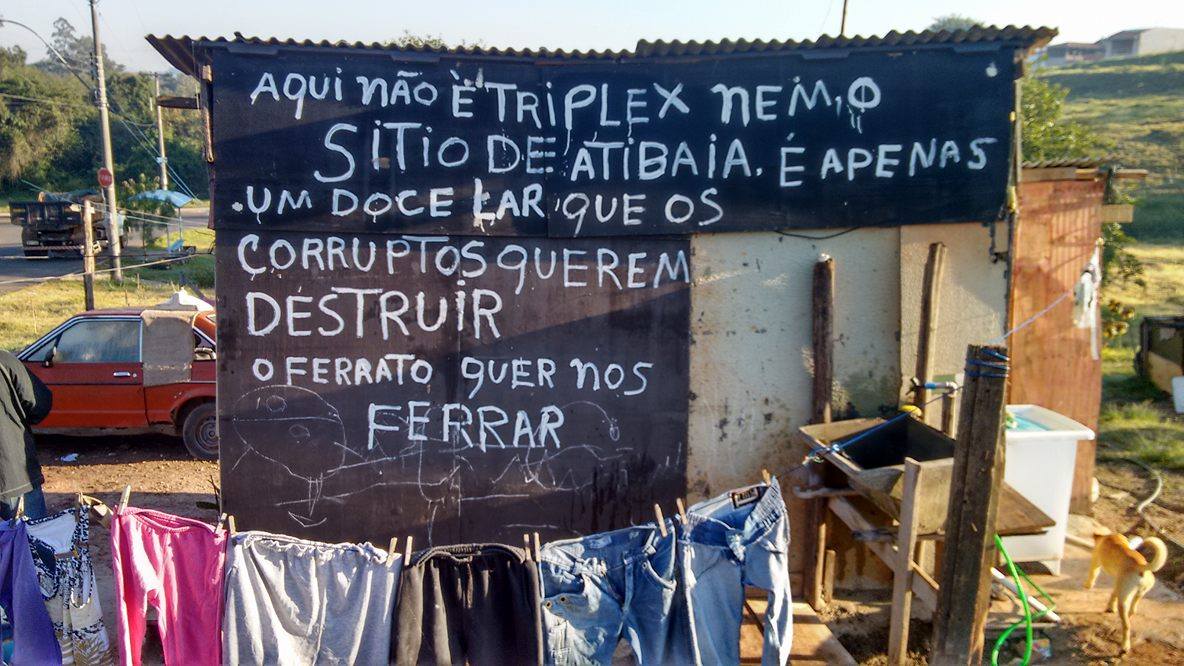 AQUI NÃO È TRIPLEX NEM, O
SITIO DE ATIBAIA. É APENAS
.UM DOCE LAR QUE OS
CORRUPTOS QUEREM
DESTRUIR
O FERRATO QUER NOS
FERRAR